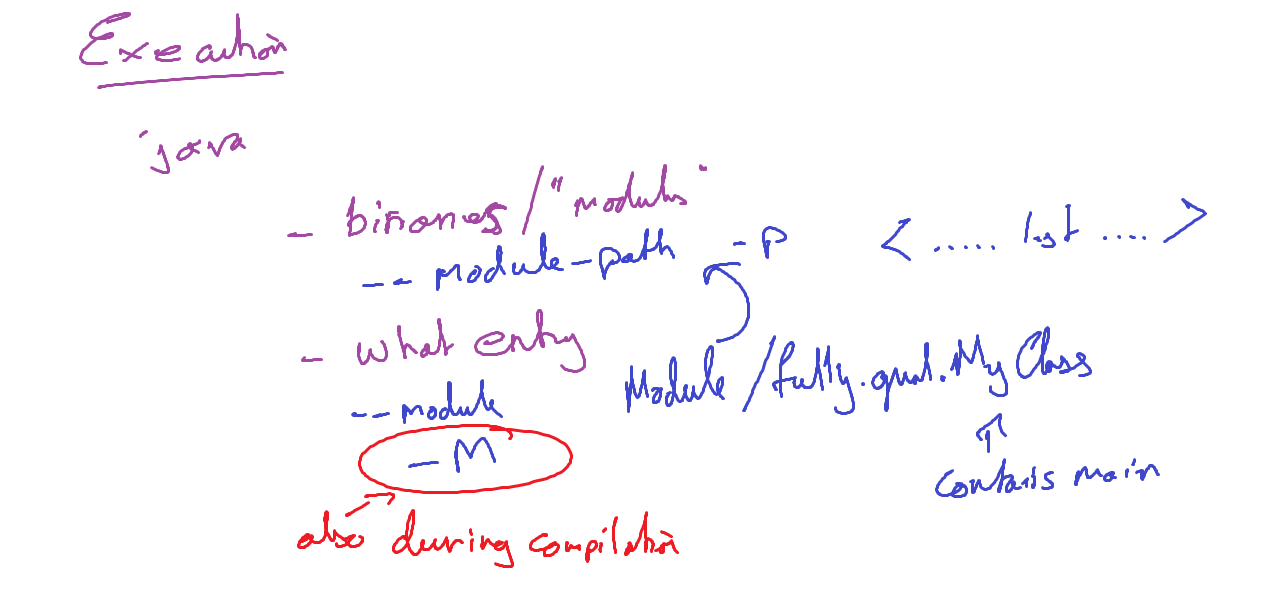 Execution
java
- binaries/"modules"
-- module-path -p < ..... list .... >
- what entry
--module Module/fully.qual.MyClass
-M
contains main
also during compilation